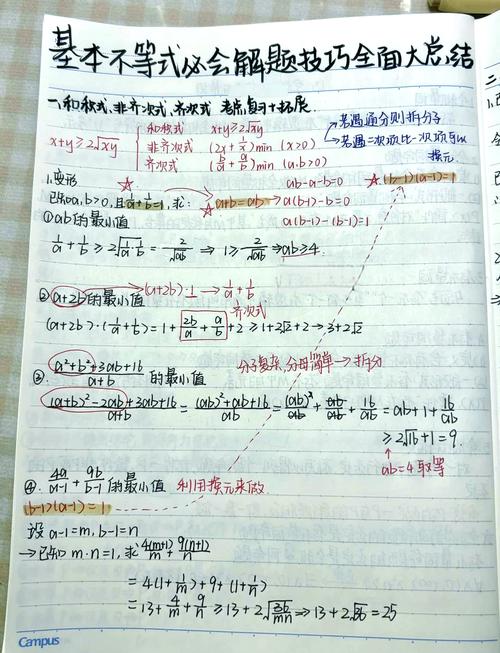 基本不等式必会解题技巧全面大总结
一、和积式、非齐次式、齐次式 考点复习+拓展.
x+y≥2√xy { 和积式 x+y≥2√xy
非齐次式 (2x+1/x)min (x>0)
齐次式 (b/a+a/b)min (a.b>0)
→若遇通分则拆分子
→若遇二次项比一次项可以
换元
1.变形
已知a,b>0,且1/a+1/b=1,求: ☆a+b=ab→
ab-a-b=0
a(b-1)-b=0
a(b-1)-(b-1)=1
☆(b-1)(a-1)=1
①ab的最小值
1/a+1/b≥2√1/a·1/b=2/√ab ⇒ 1≥2/√ab ⇒ab≥4.
②a+2b的最小值→(a+2b)·1→1/a+1/b
齐次式
(a+2b)·(1/a+1/b)=1+2b/a+a/b+2≥1+2√2+2→3+2√2
③. a²+b²+3ab+16/a+b 的最小值
分子复杂,分母简单→拆分
(a+b)²-2ab+3ab+16/a+b=(ab)²+ab+16/ab=(ab)²/ab+ab/ab+16/ab=ab+1+16/ab
≥2√16+1=9.
ab=4取等
④. 4a/a-1+9b/b-1的最小值 利用换元来做.
(b-1)(a-1)=1
设 a-1=m,b-1=n
→已知 m·n=1,求4(m+1)/m+9(n+1)/n
=4(1+1/m)+9+(1+1/n)
=13+4/m+9/n≥13+2√36/mn⇒13+2√36=25
Campus